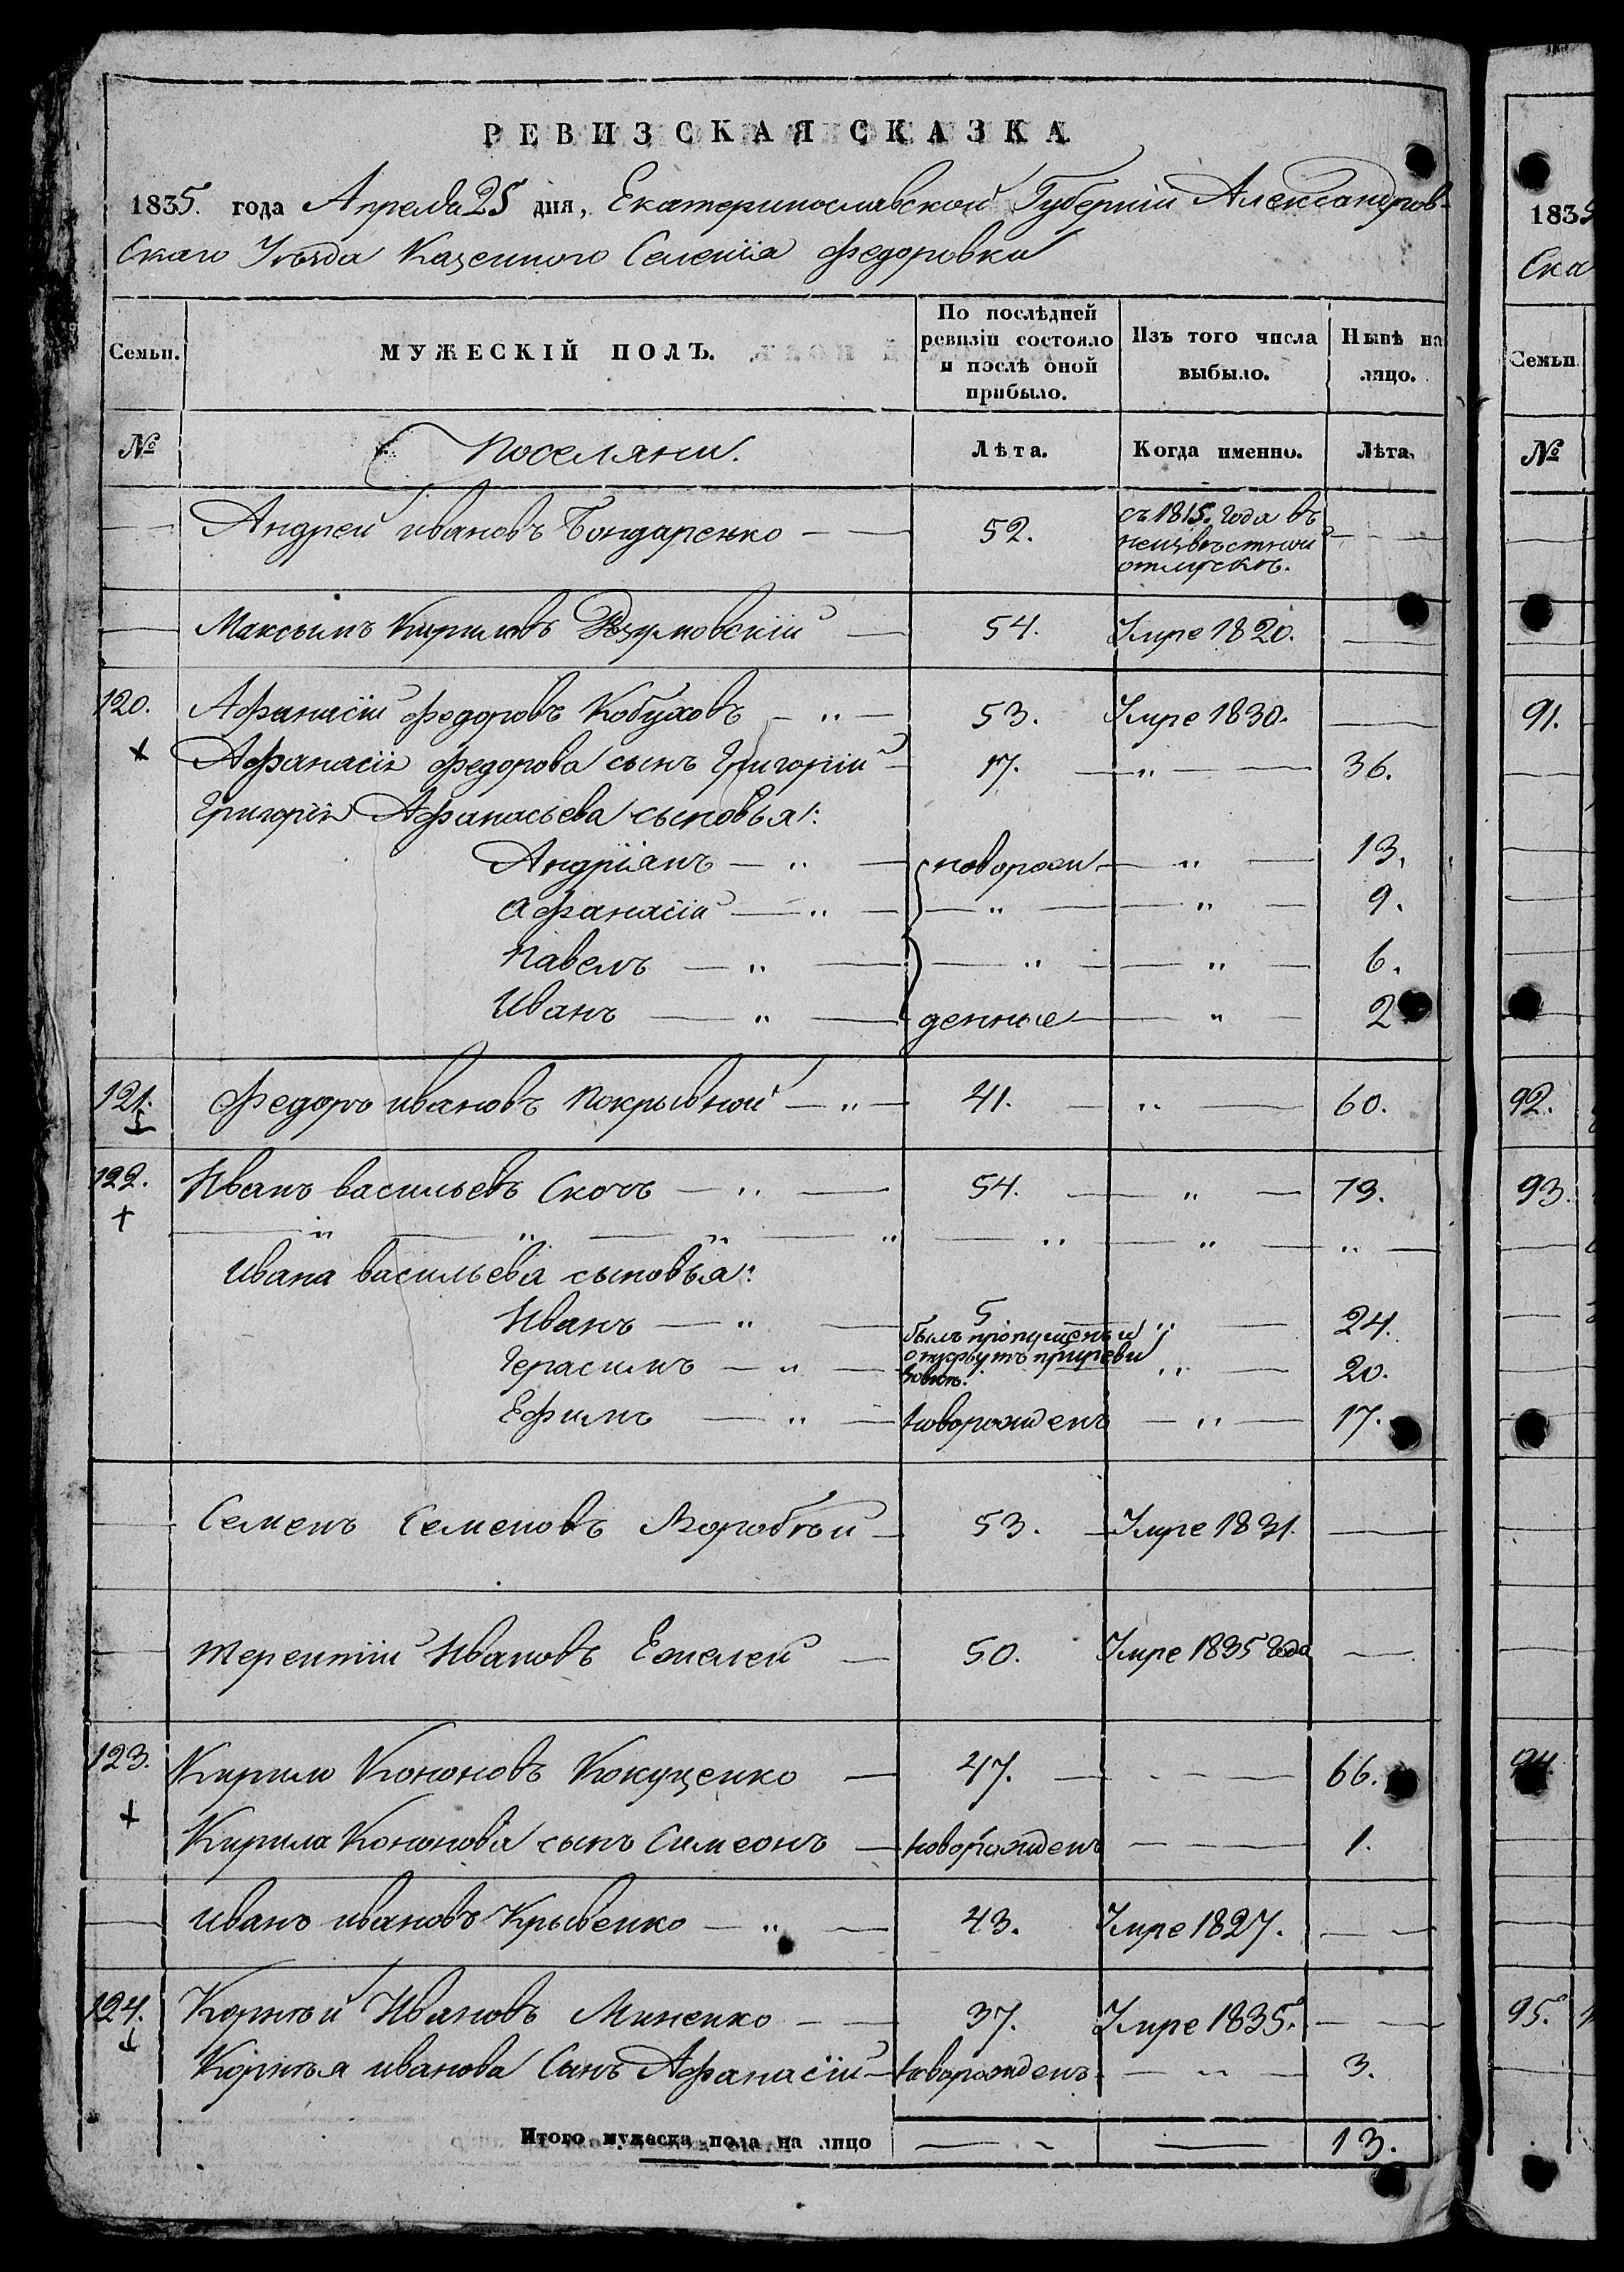 РЕВИЗСКАЯ СКАЗКА
1835. года Апреля 25 дня, Екатеринославской Губернии Александров-
скаго Уезда Казенного Селения Федоровки
Семьи. МУЖЕСКІЙ ПОЛЪ. По послѣдней ревизіи состояло и послѣ оной прибыло. Изъ того числа выбыло. Нынѣ на лицо.
№ Поселяни. Лѣта. Когда именно. Лѣта.
Андрей ивановъ Бондаренко — 52. съ 1815. года въ
неизвѣстной
отлускѣ.
Максымъ Кириловъ — 54. Умре 1820. —
120. Афанасій Федоровъ Кобуховъ — „ — 53. Умре 1830. —
+ Афанасія Федорова сынъ Григорій — 17. — „ — 36.
Григорія Афанасьева сыновья:
Андріянъ — „ — новорож — „ — 13.
Афанасій — „ — „ — „ — 9.
Павелъ — „ — „ — „ — 6.
Иванъ — „ — денные — „ — 2
121. Федоръ ивановъ Покрывной — „ — 41. — „ — 60.
122. Иванъ васильевъ Скочъ — „ — 54. — „ — 73.
+ — „ — „ — „ — „ — „ — „ — „ —
Ивана васильева сыновья:
Иванъ — „ — 5 „ — 24.
былъ пропущенъ и
Герасимъ — „ — открытъ приреви „ — 20.
зовкѣ.
Ефимъ — „ — новорожденъ — „ — 17.
Семенъ Семеновъ Воробѣй — 53. — Умре 1831. —
Терентій Ивановъ Емелей — 50. Умре 1835 года —
123. Кирило Кононовъ Кокуценко — 47. — 66.
+ Кирила Кононова сынъ Симеонъ — новорожденъ — 1.
Иванъ ивановъ Крывенко — „ — 43. Умре 1827. —
124. Корнѣй Ивановъ Миненко — 37. Умре 1835. —
Корнѣя иванова Сынъ Афанасій — новорожденъ — 3.
Итого мужеска пола на лицо — — 13.
1835
Ска
Семьи
№
91.
92.
93.
94.
95.